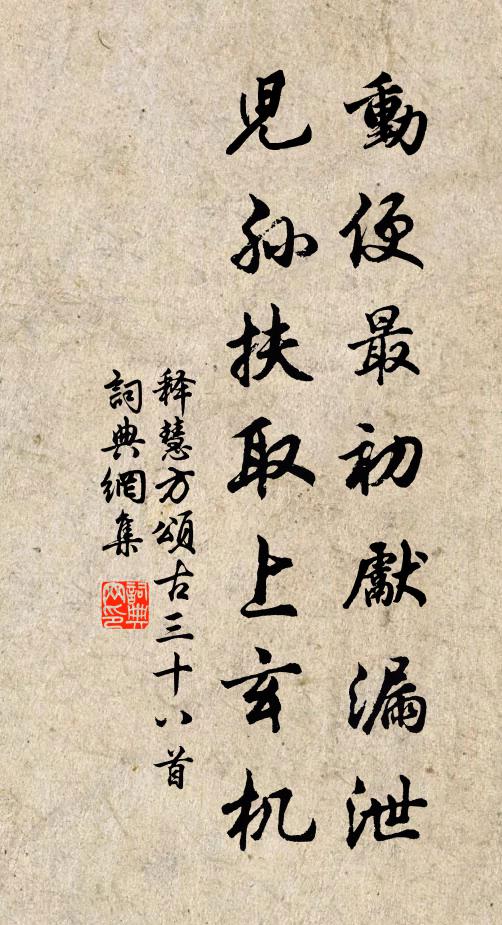 動便最初獻漏泄
児孙扶取上玄机
释慧方頌古三十八首
詞典網集
詞典网印